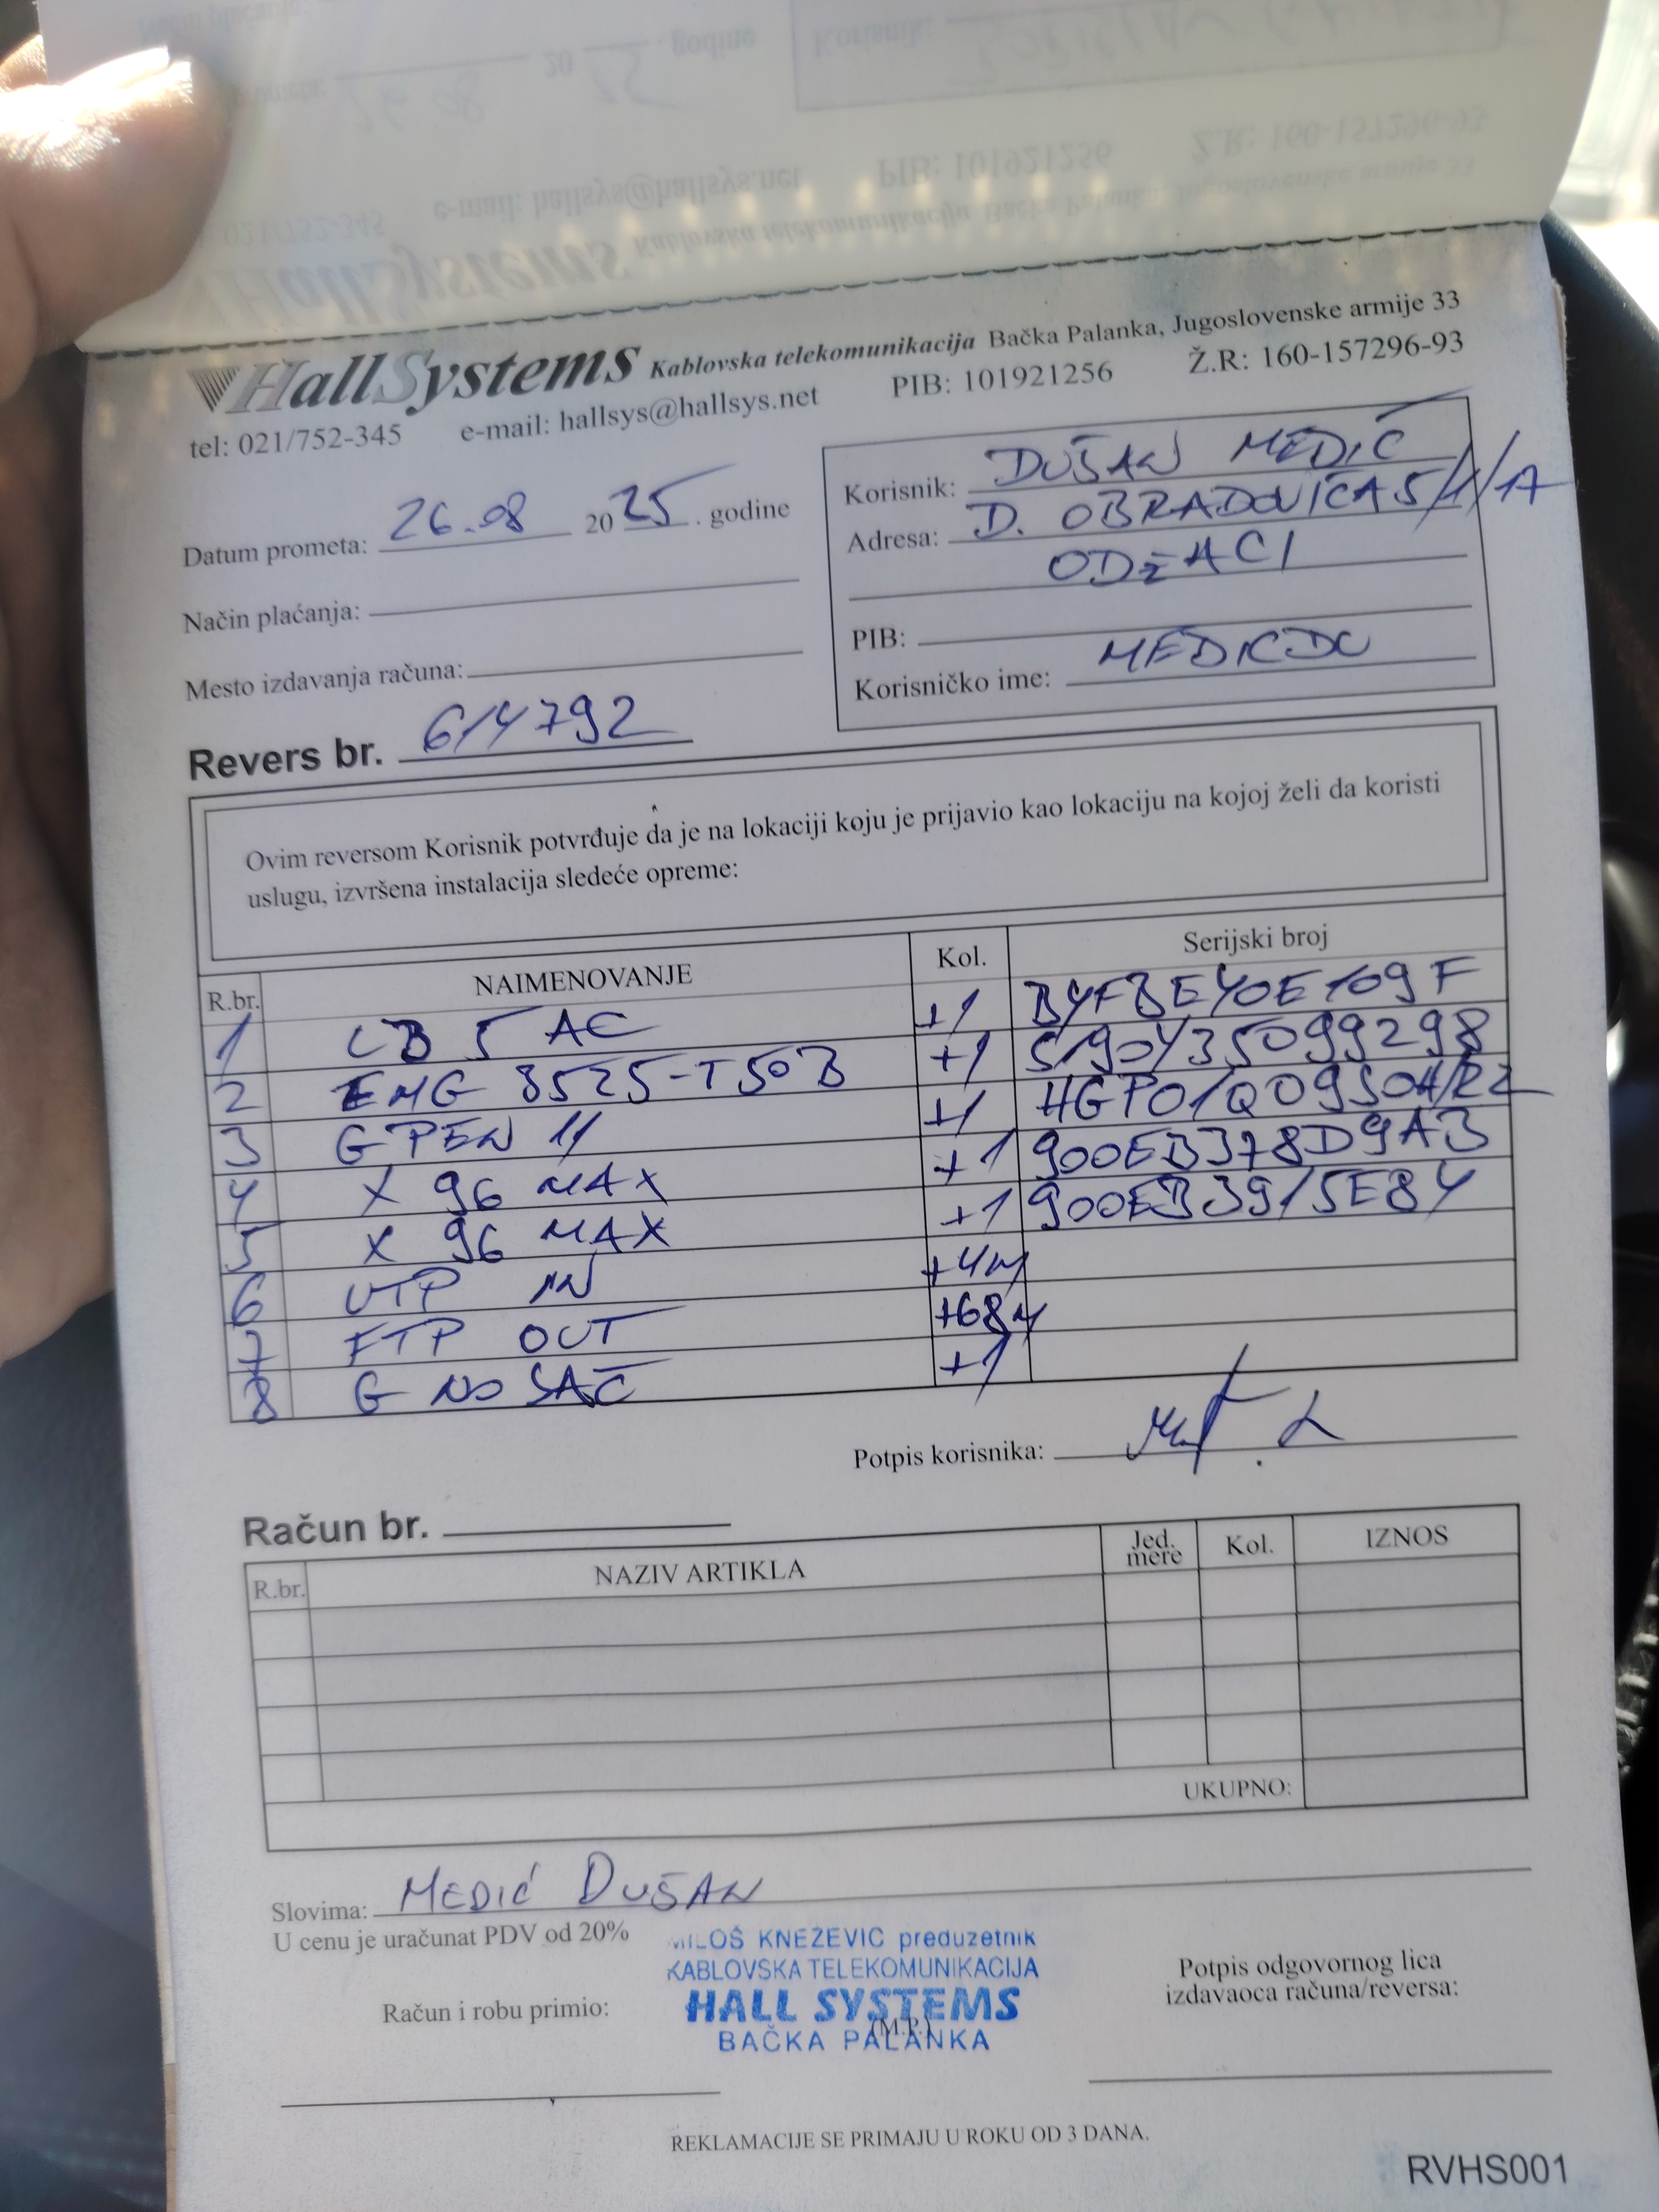 HallSystems Kablovska telekomunikacija Bačka Palanka, Jugoslovenske armije 33
tel: 021/752-345 e-mail: hallsys@hallsys.net PIB: 101921256 Ž.R: 160-157296-93
Datum prometa: 26.08 2025. godine
Način plaćanja:
Mesto izdavanja računa:
Revers br. 614792
Korisnik: DUŠAN MEDIĆ
Adresa: D. OBRADOVIĆA 5/1/17
ODŽACI
PIB:
Korisničko ime: MEDICDU
Ovim reversom Korisnik potvrđuje da je na lokaciji koju je prijavio kao lokaciju na kojoj želi da koristi
uslugu, izvršena instalacija sledeće opreme:
R.br. NAIMENOVANJE Kol. Serijski broj
1 LB 5 AC +1 B4FBE40E109F
2 EMG 8525-T50B +1 S190Y35099298
3 G PEN 11 +1
4 X 96 MAX +1 900EB378D9AB
5 X 96 MAX +1 900EB3915E84
6 UTP IN +4M
7 FTP OUT +68M
8 G NOSAČ +1
Potpis korisnika:
Račun br.
R.br. NAZIV ARTIKLA Jed. mere Kol. IZNOS
UKUPNO:
Slovima: MEDIĆ DUŠAN
U cenu je uračunat PDV od 20%
MILOŠ KNEŽEVIĆ preduzetnik
KABLOVSKA TELEKOMUNIKACIJA
HALL SYSTEMS
(M.P.)
BAČKA PALANKA
Račun i robu primio:
Potpis odgovornog lica
izdavaoca računa/reversa:
REKLAMACIJE SE PRIMAJU U ROKU OD 3 DANA.
RVHS001